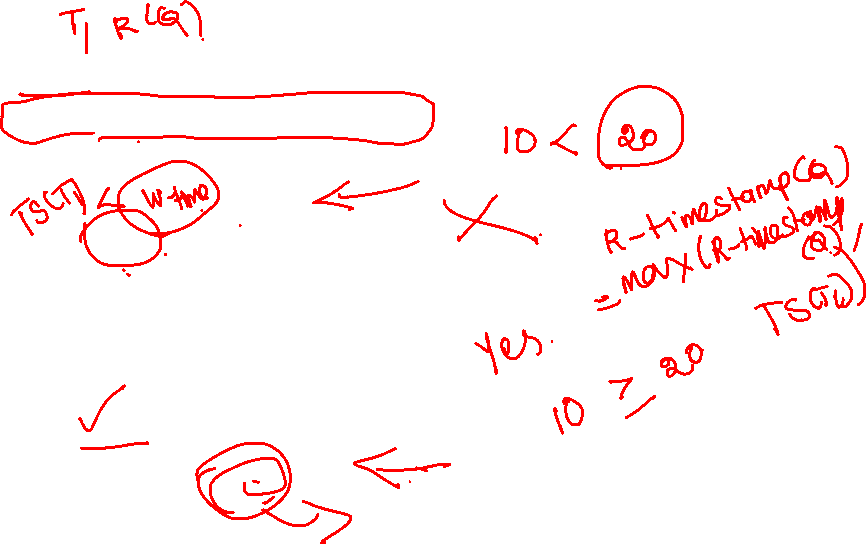 T1 R(Q)
10 < 20
TS(T1) < W-time
R-timestamp(Q)
= max(R-timestamp
(Q),
TS(T1))
Yes.
10 ≥ 20